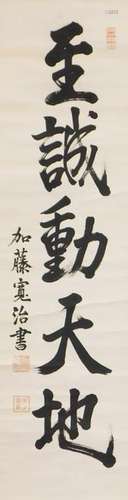 至誠動天地
加藤寛治書